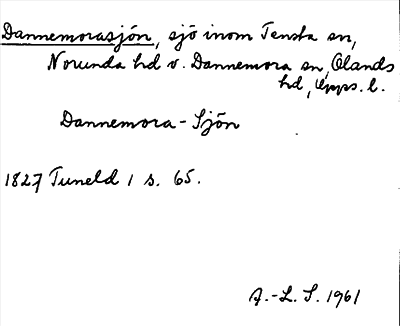 Dannemorasjön, sjö inom Tensta sn,
Norunda hd o. Dannemora sn, Olands
hd, Upps. l.
Dannemora-Sjön
1827 Tuneld 1 s. 65.
A.-L. S. 1961